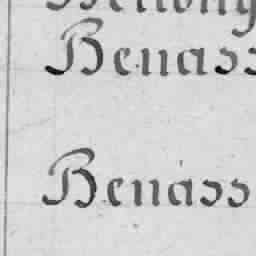 Benass
Benáss